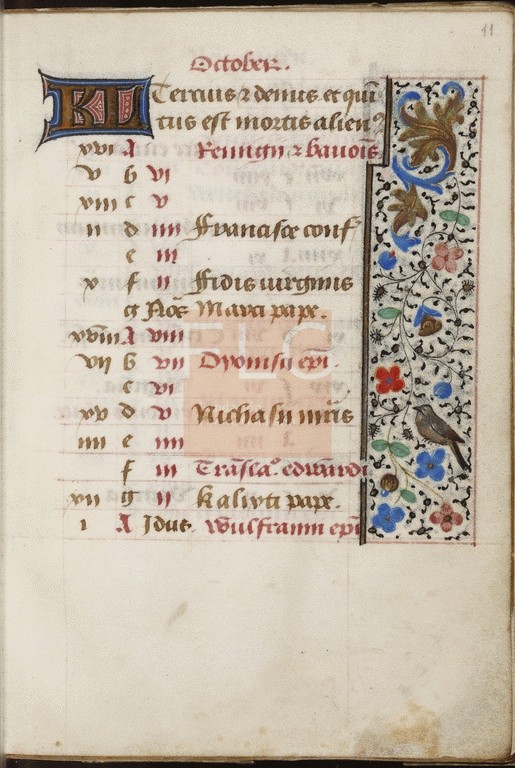 11
October.
KL Tercius ⁊ denus et qui̅
tus est mortis alien⁹
xvi A Remigii ⁊ bauonis
v b vi
xiii c v
ii d iiii Francisce conf
e iii
x f ii Fidis uirginis
g No̅s Marci pape.
xviii A viii
vii b vii Dyonisii epi̅.
c vi
xv d v Nichasii mris
iiii e iiii
f iii Tra̅sla̅. edwardi
xii g ii Kalixti pape.
i A Idus. Wulfranni epi̅
FLC